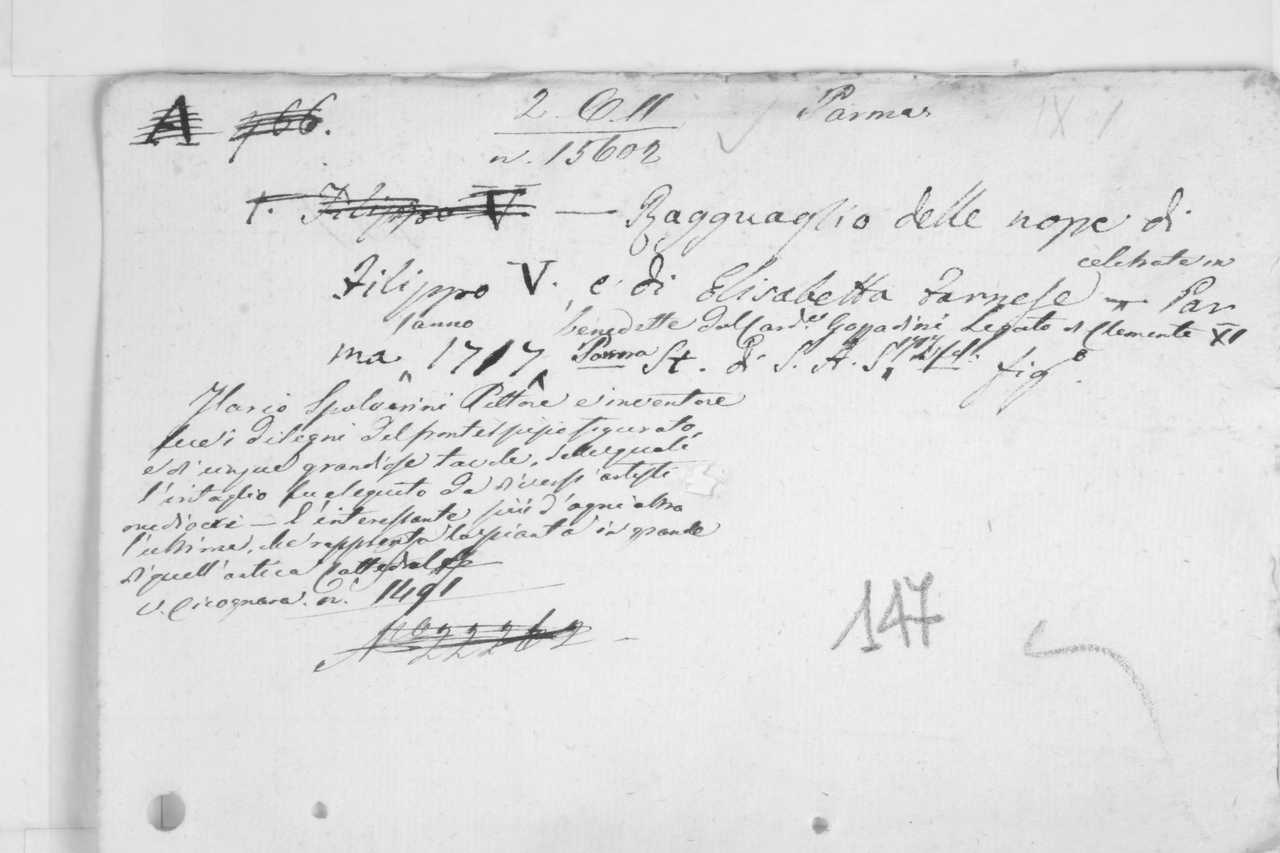 A 766. 2. Q. 11 Parma
n. 15602
1. Filippo V — Ragguaglio delle nozze di
celebrate in
Filippo V. e di Elisabetta Farnese Par
l'anno benedette dal Card.l Gozzadini Legato di Clemente XI
ma 1717, Parma St. di S. A. S. 1717 fig.e
Ilario Spolverini Pittore e inventore
fece i disegni del frontespizio figurato,
e di cinque grandiose tavole, delle quali
l'intaglio fu eseguito da diversi artisti
mediocri — l'interessante più d'ogni altra
l'ultima, che rappresenta la pianta in grande
di quell'antica Cattedrale
V. Cicognara. n. 1491
N. 22262
147